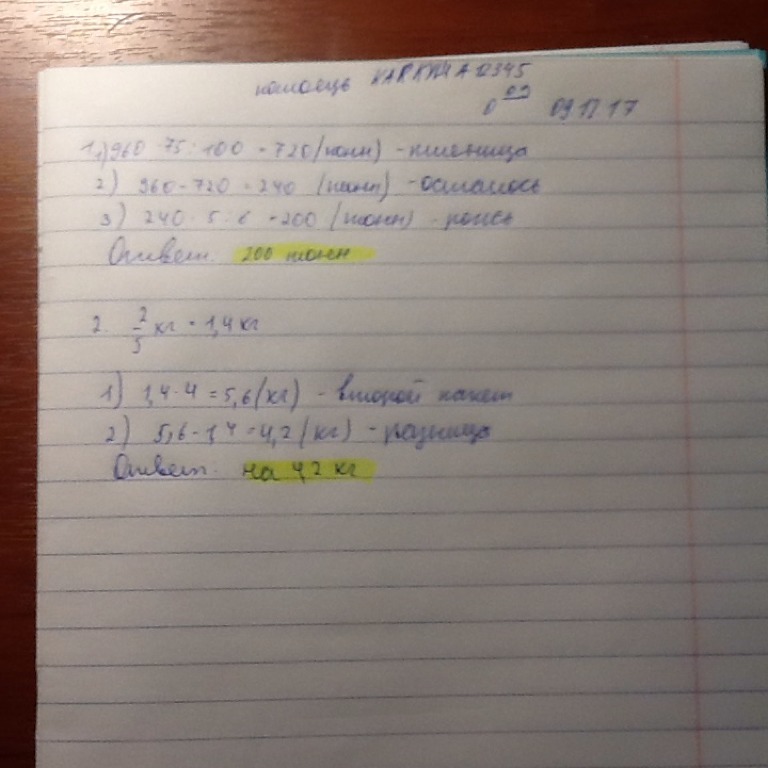 помощь KARKYHA12345
0 09 09 11 17
1. 1) 960 · 75 : 100 = 720 (тонн) - пшеница
2) 960 - 720 = 240 (тонн) - осталось
3) 240 · 5 : 6 = 200 (тонн) - рожь
Ответ. 200 тонн
2. 7/5 кг = 1,4 кг
1) 1,4 · 4 = 5,6 (кг) - второй пакет
2) 5,6 - 1,4 = 4,2 (кг) - разница
Ответ. на 4,2 кг